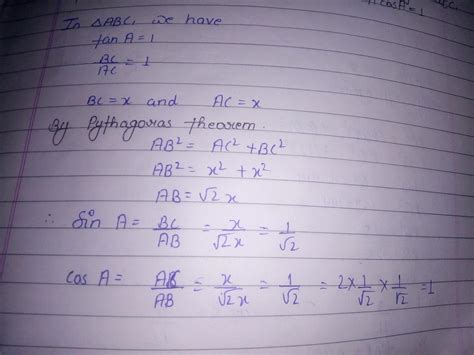 cos A = 1
In △ABC, we have
tan A = 1
BC/AC = 1
BC = x and AC = x
By Pythagoras theorem.
AB² = AC² + BC²
AB² = x² + x²
AB = √2 x
∴ Sin A = BC/AB = x/√2x = 1/√2
cos A = AC/AB = x/√2x = 1/√2 = 2 × 1/√2 × 1/√2 = 1